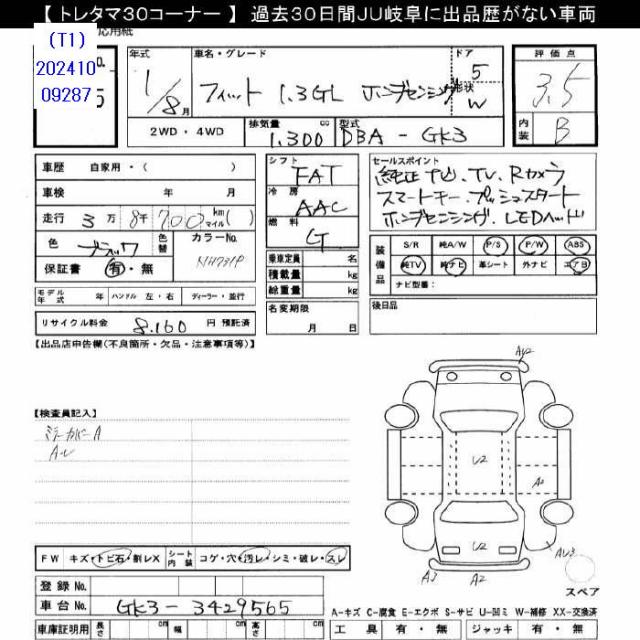 【トレタマ30コーナー】 過去30日間JU岐阜に出品歴がない車両
(T1)
202410
09287
応用紙
年式 車名・グレード ドア 評価点
1/8月 フィット 1.3GL ホンダセンシング 5 形状 W 3.5
2WD・4WD 排気量 1.300 cc 型式 DBA-GK3 内装 B
車歴 自家用・( ) シフト FAT セールスポイント
車検 年 月 冷房 AAC 純正ナビ、TV、Rカメラ
走行 3万8千700 km マイル ( ) 燃料 G スマートキー、プッシュスタート
ホンダセンシング、LEDヘッド
色 ブラック 色替 カラーNo. NH731P
保証書 有・無
乗車定員 名
積載量 kg
総重量 kg
装備品 S/R 純A/W P/S P/W ABS
純TV 純ナビ 革シート 外ナビ エアB
ナビ型番:
モデル年式 年 ハンドル 左・右 ディーラー・並行
名変期限 月 日
後日品
リサイクル料金 8.160 円 預託済
【出品店申告欄(不良箇所・欠品・注意事項等)】
【検査員記入】
ミラーカバーA
AU2
U2
A2
U2
AU3
A3 A2
FW キズ・トビ石・割レX シート内装 コゲ・穴・汚レ・シミ・破レ・スレ
スペア
登録No.
車台No. GK3-3429565
A-キズ C-腐食 E-エクボ S-サビ U-凹ミ W-補修 XX-交換済
車庫証明用 長さ cm 幅 cm 高さ cm 工具 有・無 ジャッキ 有・無